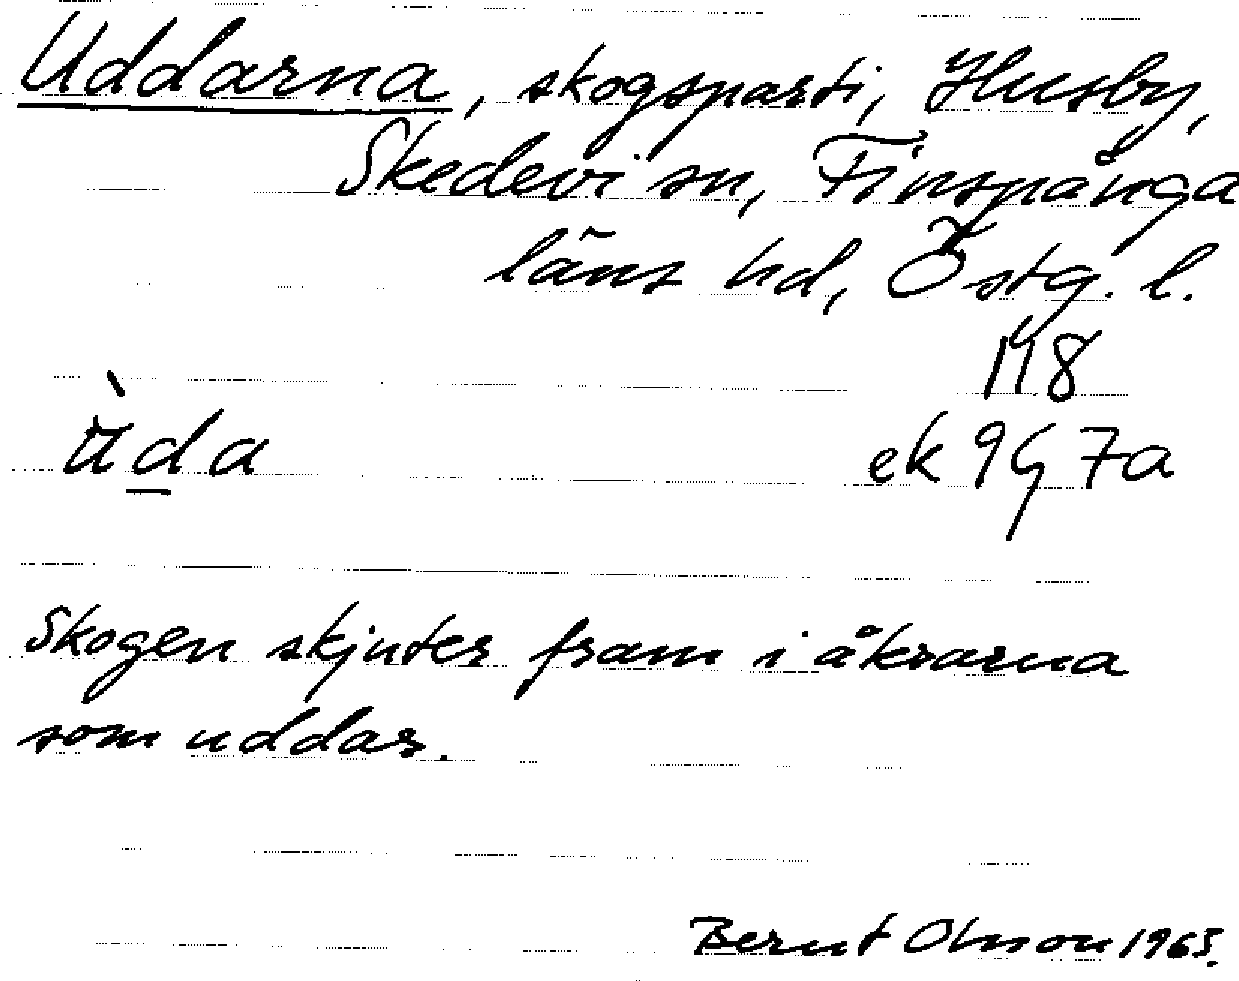 Uddarna, skogsparti, Husby,
Skedevi sn, Finspånga
läns hd, Östg. l.
118
ùda ek 9G7a
Skogen skjuter fram i åkrarna
som uddar.
Bernt Olsson 1965.